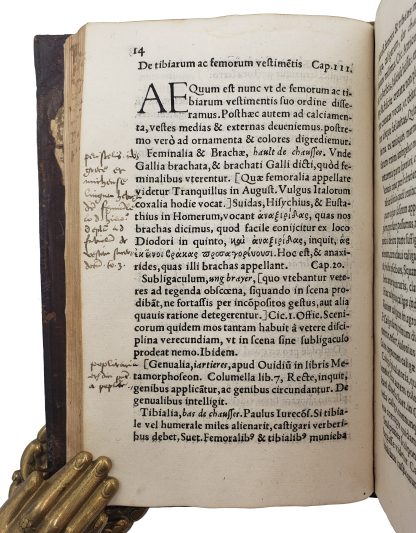 14
De tibiarum ac femorum vestimẽtis Cap.III.
AEQuum est nunc vt de femorum ac ti-
biarum vestimentis suo ordine disse-
ramus. Posthæc autem ad calciamen-
ta, vestes medias & externas deueniemus. postre-
mo verò ad ornamenta & colores digrediemur.
Feminalia & Brachæ, hault de chausses. Vnde
Gallia brachata, & brachati Galli dicti, quòd fe-
minalibus vterentur. [Quæ femoralia appellare
videtur Tranquillus in August. Vulgus Italorum
coxalia hodie vocat.] Suidas, Hesychius, & Eusta-
thius in Homerum, vocant ἀναξυρίδας, quas nos
brachas dicimus, quod facile conijcitur ex loco
Diodori in quinto, καὶ ἀναξυρίδας, inquit, ἃς
ἐκεῖνοι βράκας προσαγορεύουσι. Hoc est, & anaxi-
rides, quas illi brachas appellant. Cap.20.
Subligaculum, ung brayer, [quo vtebantur vete-
res ad tegenda obscœna, siquando in scena pro-
dibãt, ne fortassis per incõpositos gestus, aut alia
quauis ratione detegerentur.] Cic.1. Offic. Sceni-
corum quidem mos tantam habuit à vetere disci-
plina verecundiam, vt in scena sine subligaculo
prodeat nemo. Ibidem.
[Genualia, iartieres, apud Ouidiũ in libris Me-
tamorphoseon. Columella lib.7, Recte, inquit,
genibus applicãtur, ac genibus circundantur. De
genualibus intelligit.
Tibialia, bas de chausses. Paulus Iurecõs. Si tibia-
le vel humerale miles alienarit, castigari verberi-
bus debet, Suet. Femoralibꝰ & tibialibꝰ munieba